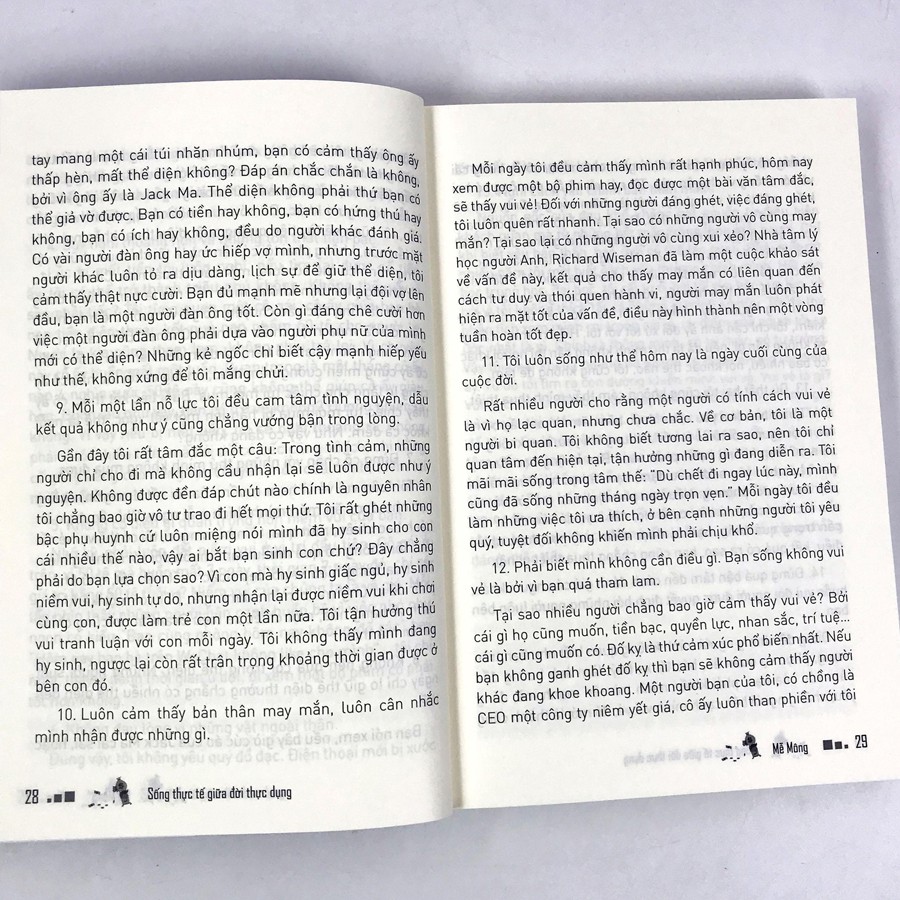 tay mang một cái túi nhăn nhúm, bạn có cảm thấy ông ấy
thấp hèn, mất thể diện không? Đáp án chắc chắn là không,
bởi vì ông ấy là Jack Ma. Thể diện không phải thứ bạn có
thể giả vờ được. Bạn có tiền hay không, bạn có hứng thú hay
không, bạn có ích hay không, đều do người khác đánh giá.
Có vài người đàn ông hay ức hiếp vợ mình, nhưng trước mặt
người khác luôn tỏ ra dịu dàng, lịch sự để giữ thể diện, tôi
cảm thấy thật nực cười. Bạn đủ mạnh mẽ nhưng lại đội vợ lên
đầu, bạn là một người đàn ông tốt. Còn gì đáng chê cười hơn
việc một người đàn ông phải dựa vào người phụ nữ của mình
mới có thể diện? Những kẻ ngốc chỉ biết cậy mạnh hiếp yếu
như thế, không xứng để tôi mắng chửi.
9. Mỗi một lần nỗ lực tôi đều cam tâm tình nguyện, dẫu
kết quả không như ý cũng chẳng vướng bận trong lòng.
Gần đây tôi rất tâm đắc một câu: Trong tình cảm, những
người chỉ cho đi mà không cầu nhận lại sẽ luôn được như ý
nguyện. Không được đền đáp chút nào chính là nguyên nhân
tôi chẳng bao giờ vô tư trao đi hết mọi thứ. Tôi rất ghét những
bậc phụ huynh cứ luôn miệng nói mình đã hy sinh cho con
cái nhiều thế nào, vậy ai bắt bạn sinh con chứ? Đây chẳng
phải do bạn lựa chọn sao? Vì con mà hy sinh giấc ngủ, hy sinh
niềm vui, hy sinh tự do, nhưng nhận lại được niềm vui khi chơi
cùng con, được làm trẻ con một lần nữa. Tôi tận hưởng thú
vui tranh luận với con mỗi ngày. Tôi không thấy mình đang
hy sinh, ngược lại còn rất trân trọng khoảng thời gian được ở
bên con đó.
10. Luôn cảm thấy bản thân may mắn, luôn cân nhắc
mình nhận được những gì.
28
Sống thực tế giữa đời thực dụng
Mỗi ngày tôi đều cảm thấy mình rất hạnh phúc, hôm nay
xem được một bộ phim hay, đọc được một bài văn tâm đắc,
sẽ thấy vui vẻ! Đối với những người đáng ghét, việc đáng ghét,
tôi luôn quên rất nhanh. Tại sao có những người vô cùng may
mắn? Tại sao lại có những người vô cùng xui xẻo? Nhà tâm lý
học người Anh, Richard Wiseman đã làm một cuộc khảo sát
về vấn đề này, kết quả cho thấy may mắn có liên quan đến
cách tư duy và thói quen hành vi, người may mắn luôn phát
hiện ra mặt tốt của vấn đề, điều này hình thành nên một vòng
tuần hoàn tốt đẹp.
11. Tôi luôn sống như thể hôm nay là ngày cuối cùng của
cuộc đời.
Rất nhiều người cho rằng một người có tính cách vui vẻ
là vì họ lạc quan, nhưng chưa chắc. Về cơ bản, tôi là một
người bi quan. Tôi không biết tương lai ra sao, nên tôi chỉ
quan tâm đến hiện tại, tận hưởng những gì đang diễn ra. Tôi
mãi mãi sống trong tâm thế: "Dù chết đi ngay lúc này, mình
cũng đã sống những tháng ngày trọn vẹn." Mỗi ngày tôi đều
làm những việc tôi ưa thích, ở bên cạnh những người tôi yêu
quý, tuyệt đối không khiến mình phải chịu khổ.
12. Phải biết mình không cần điều gì. Bạn sống không vui
vẻ là bởi vì bạn quá tham lam.
Tại sao nhiều người chẳng bao giờ cảm thấy vui vẻ? Bởi
cái gì họ cũng muốn, tiền bạc, quyền lực, nhan sắc, trí tuệ...
cái gì cũng muốn có. Đố kỵ là thứ cảm xúc phổ biến nhất. Nếu
bạn không ganh ghét đố kỵ thì bạn sẽ không cảm thấy người
khác đang khoe khoang. Một người bạn của tôi, có chồng là
CEO một công ty niêm yết giá, cô ấy luôn than phiền với tôi
Mễ Mông
29